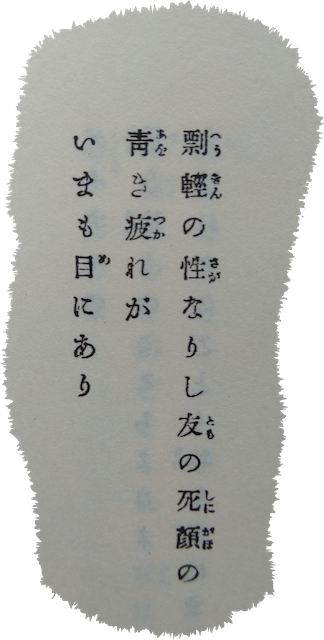 剽軽の性なりし友の死顔の
青き疲れが
いまも目にあり